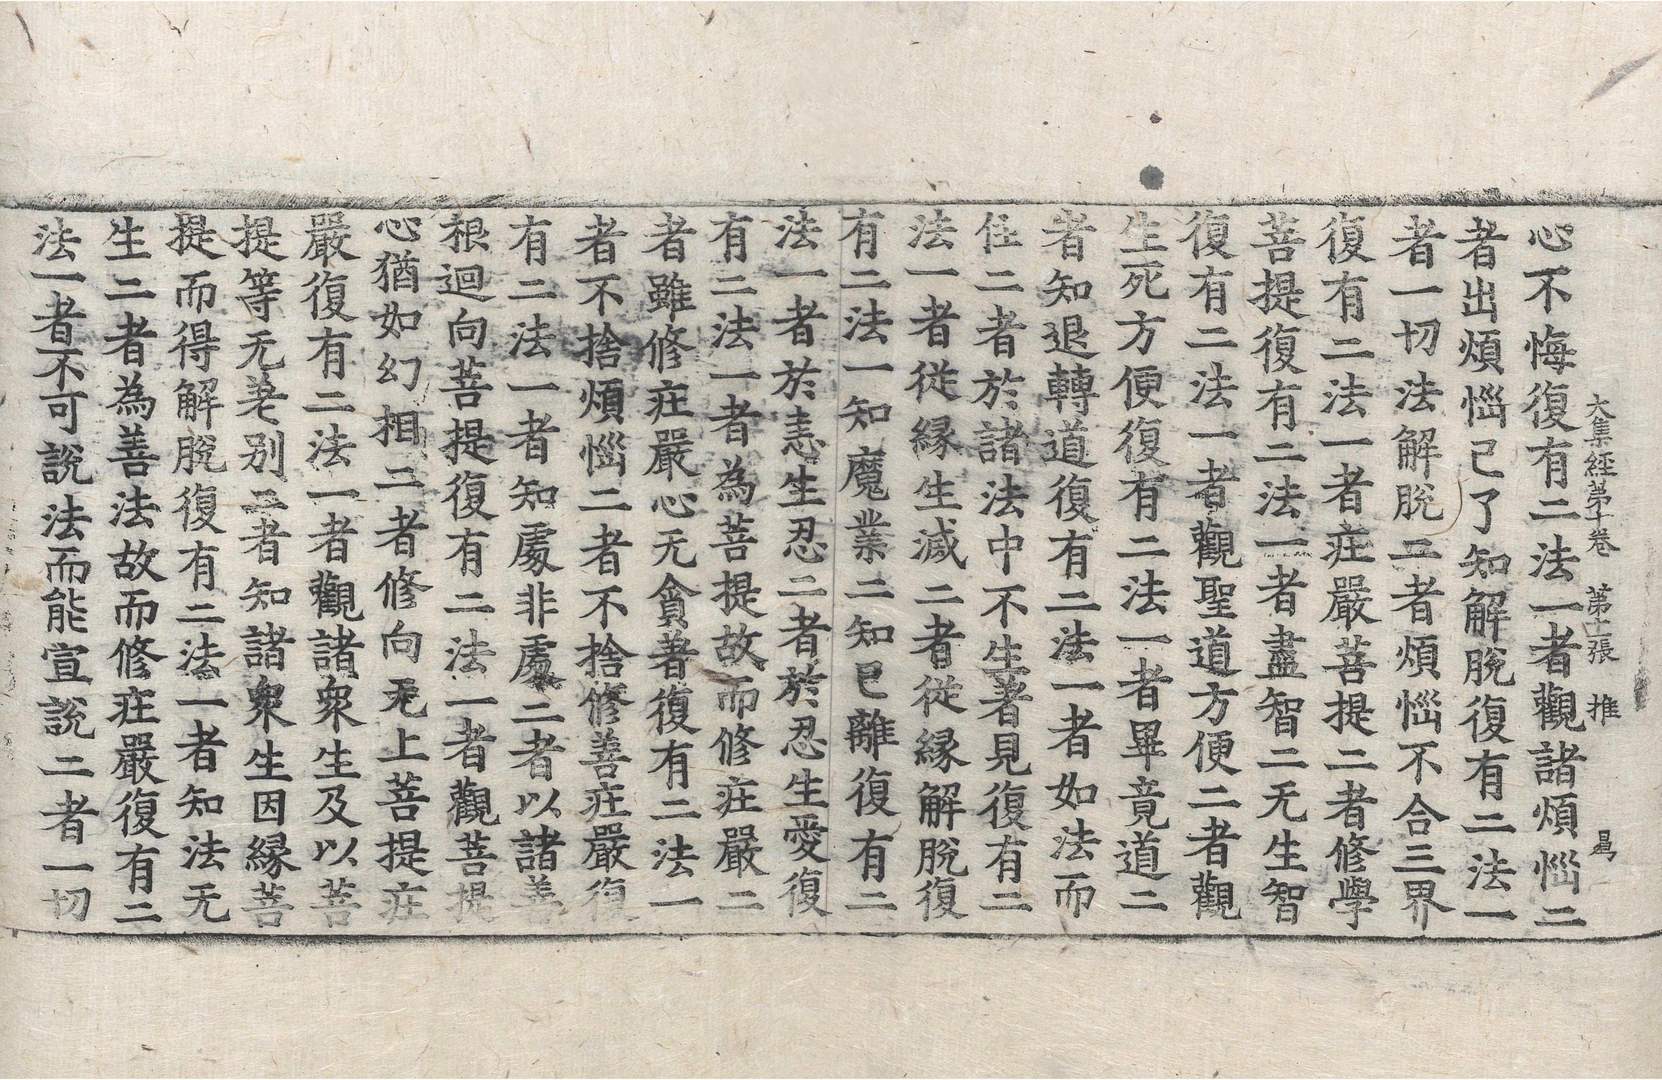 大集經第十卷 第十張 推 昌
心不悔復有二法一者觀諸煩惱二
者出煩惱已了知解脫復有二法一
者一切法解脫二者煩惱不合三界
復有二法一者莊嚴菩提二者修學
菩提復有二法一者盡智二无生智
復有二法一者觀聖道方便二者觀
生死方便復有二法一者畢竟道二
者知退轉道復有二法一者如法而
住二者於諸法中不生著見復有二
法一者從緣生滅二者從緣解脫復
有二法一知魔業二知已離復有二
法一者於恚生忍二者於忍生愛復
有二法一者為菩提故而修莊嚴二
者雖修莊嚴心无貪著復有二法一
者不捨煩惱二者不捨修善莊嚴復
有二法一者知處非處二者以諸善
根迴向菩提復有二法一者觀菩提
心猶如幻相二者修向无上菩提莊
嚴復有二法一者觀諸眾生及以菩
提等无差別二者知諸眾生因緣菩
提而得解脫復有二法一者知法无
生二者為善法故而修莊嚴復有二
法一者不可說法而能宣說二者一切